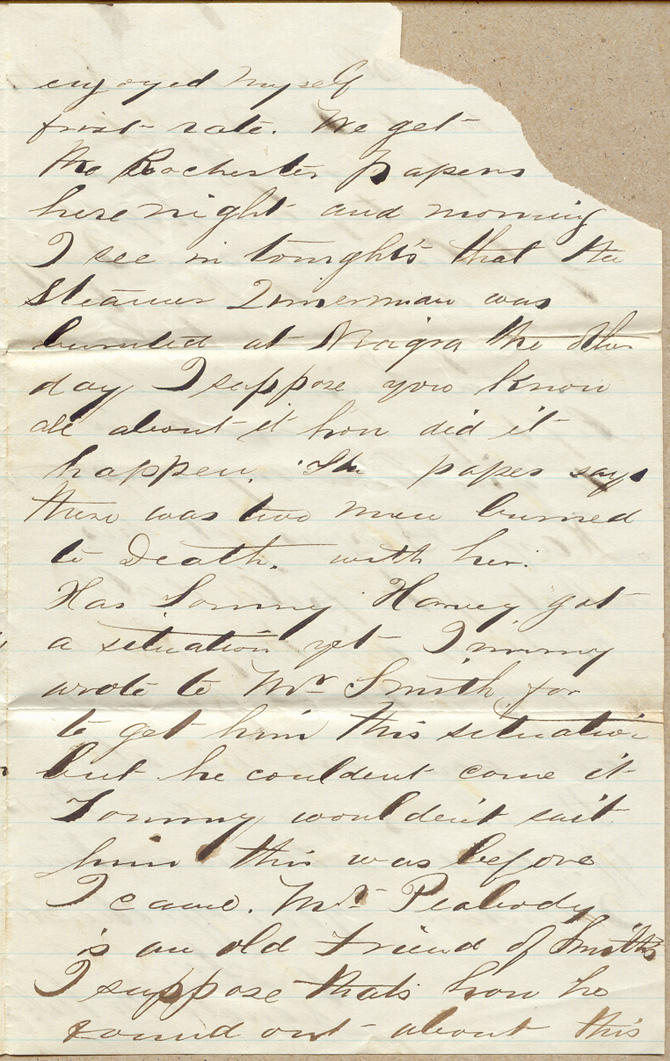 enjoyed myself
first rate. We get
the Rochester papers
here night and morning
I see in tonights that the
Steamer Zimerman was
burnted at Niagra the other
day I suppose you know
all about it how did it
happen. The papes says
there was two men burned
to Death. with her.
Has Tommy Harvey got
a situation yet Jimmy
wrote to Mr Smith for
to get him this situation
but he couldent come it
Tommy wouldent suit
him this was before
I came. Mr Peabody
is an old Friend of Smiths
I suppose thats how he
found out about this